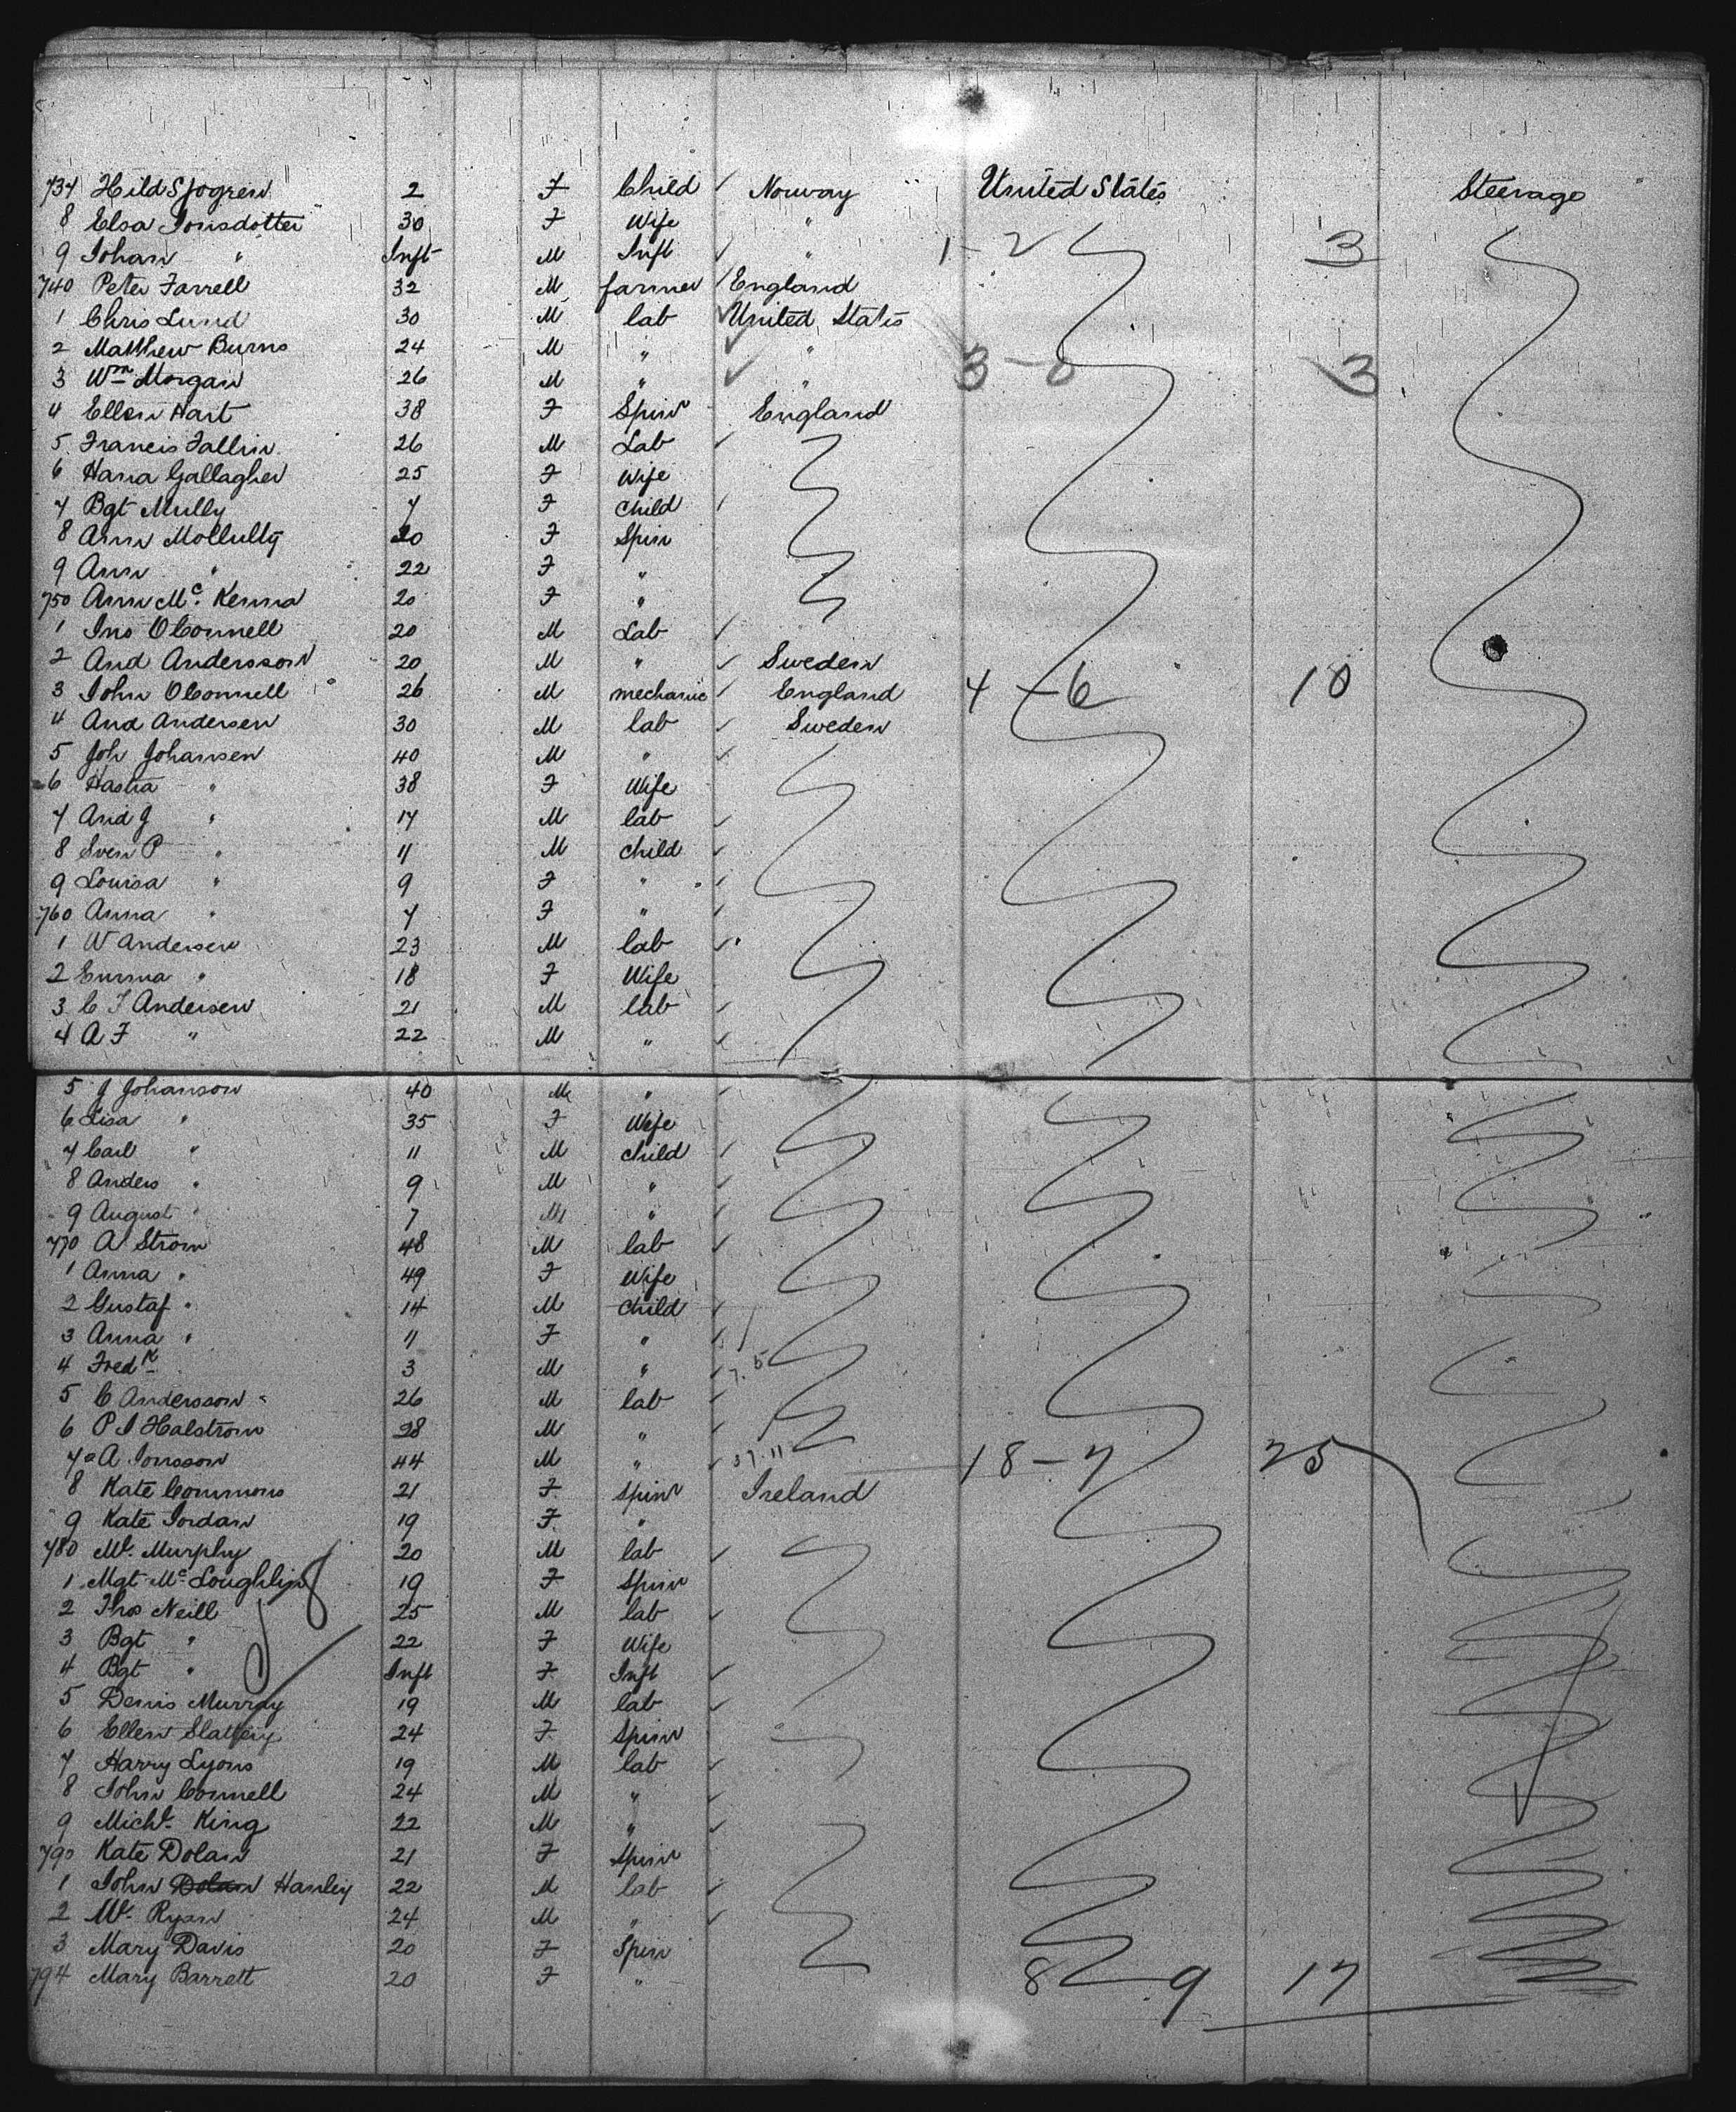 737 Hild Sjogren 2 F Child Norway United States Steerage
8 Elsa Jonsdotter 30 F Wife "
9 Johan " Inft M Inft " 1-2 3
740 Peter Farrell 32 M farmer England
1 Chris Lund 30 M lab United States
2 Matthew Burns 24 M " "
3 Wm Morgan 26 M " " 3-0 3
4 Ellen Hart 38 F Spin England
5 Francis Fallin 26 M Lab
6 Hana Gallagher 25 F Wife
7 Bgt Mully 7 F Child
8 Ann 20 F Spin
9 Ann " 22 F "
750 Ann Mc Kenna 20 F "
1 Jno OConnell 20 M Lab
2 And Andersson 20 M " Sweden
3 John OConnell 26 M mechanic England 4-6 10
4 And Andersen 30 M lab Sweden
5 Joh Johansen 40 M "
6 " 38 F Wife
7 And J " 17 M lab
8 Sven P " 11 M child
9 Louisa " 9 F "
760 Anna " 7 F "
1 W Andersen 23 M lab
2 Emma " 18 F Wife
3 C F Andersen 21 M lab
4 A F " 22 M "
5 J Johanson 40 M "
6 Lisa " 35 F Wife
7 Carl " 11 M child
8 Anders " 9 M "
9 August " 7 M "
770 A Strom 48 M lab
1 Anna " 49 F Wife
2 Gustaf " 14 M child
3 Anna " 11 F "
4 Fredk 3 M "
5 C Andersson 26 M lab
6 P J Halstrom 28 M "
7 A Jonsson 44 M " 18-7 25
8 Kate Commons 21 F Spin Ireland
9 Kate Jordan 19 F "
780 Ml. Murphy 20 M lab
1 Mgt Mc Loughlin 19 F Spin
2 Thos Neill 25 M lab
3 Bgt " 22 F Wife
4 Bgt " Inft F Inft
5 Denis Murray 19 M lab
6 Ellen Slattery 24 F Spin
7 Harry Lyons 19 M lab
8 John Connell 24 M "
9 Michl. King 22 M "
790 Kate Dolan 21 F Spin
1 John Dolan Hanley 22 M lab
2 Ml. Ryan 24 M "
3 Mary Davis 20 F Spin
794 Mary Barrett 20 F " 8 9 17